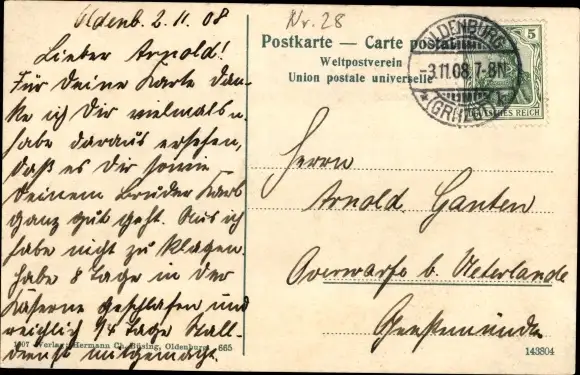 Oldenb. 2. 11. 08
Lieber Arnold!
Für Deine Karte dan-
ke ich Dir vielmals u.
habe daraus ersehen,
daß es Dir sowie
Deinem Bruder Karl
ganz gut geht. Aus ich
habe nicht zu klagen.
Habe 8 Tage in der
Kaserne geschlafen und
reichlich 1/4 Tage Stall-
dienst mitgemacht.
1907 Verlag: Hermann Ch. Büsing, Oldenburg. 665
Nr. 28
Postkarte — Carte postale
Weltpostverein
Union postale universelle
OLDENBURG
-3.11.08.7-8N.
* (GRHZGT.)
5
DEUTSCHES REICH
Herrn
Arnold Ganten
b. Ueterlande
Geestemünde
143804